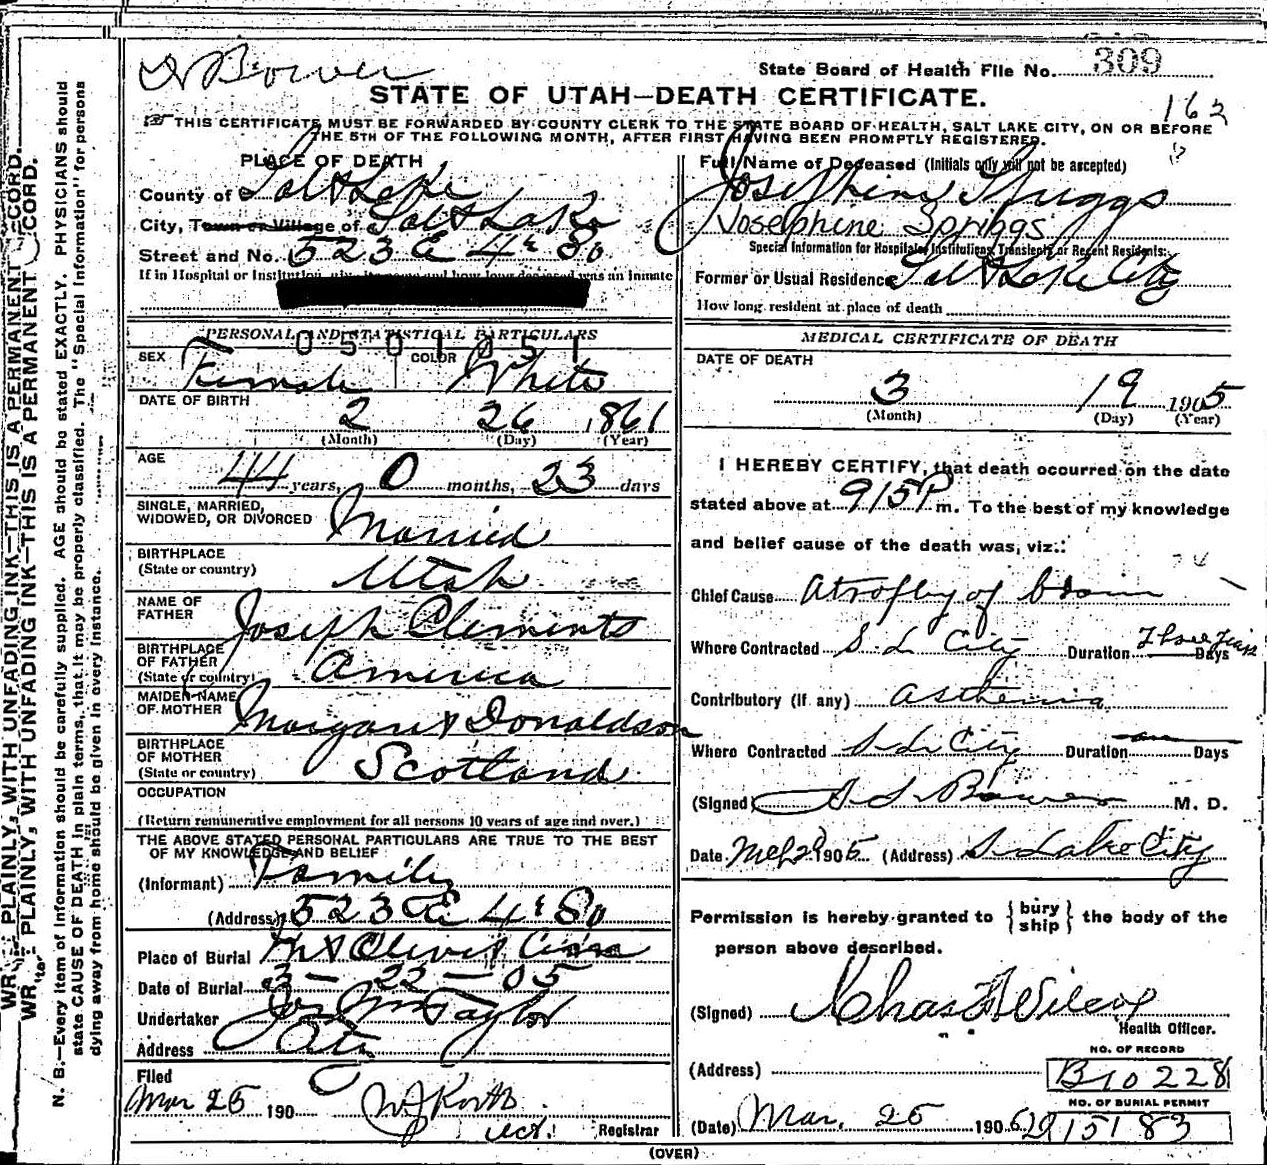 Bower
State Board of Health File No. 309
STATE OF UTAH—DEATH CERTIFICATE.
162
THIS CERTIFICATE MUST BE FORWARDED BY COUNTY CLERK TO THE STATE BOARD OF HEALTH, SALT LAKE CITY, ON OR BEFORE
THE 5TH OF THE FOLLOWING MONTH, AFTER FIRST HAVING BEEN PROMPTLY REGISTERED.
PLACE OF DEATH
County of Salt Lake
City, Town or Village of Salt Lake
Street and No. 523 E 4th So
If in Hospital or Institution was an inmate
Full Name of Deceased (Initials only will not be accepted)
Josephine Spriggs
Josephine Spriggs
Special Information for Hospitals, Institutions, Transients or Recent Residents:
Former or Usual Residence Salt Lake City
How long resident at place of death
PERSONAL AND STATISTICAL PARTICULARS
0501051
SEX Female COLOR White
DATE OF BIRTH
2 26 1861
(Month) (Day) (Year)
AGE
44 years, 0 months, 23 days
SINGLE, MARRIED,
WIDOWED, OR DIVORCED Married
BIRTHPLACE
(State or country) Utah
NAME OF
FATHER Joseph Clements
BIRTHPLACE
OF FATHER
(State or country) America
MAIDEN NAME
OF MOTHER Margaret Donaldson
BIRTHPLACE
OF MOTHER
(State or country) Scotland
OCCUPATION
(Return remunerative employment for all persons 10 years of age and over.)
THE ABOVE STATED PERSONAL PARTICULARS ARE TRUE TO THE BEST
OF MY KNOWLEDGE AND BELIEF
(Informant) Family
(Address) 523 E 4th So
Place of Burial Mt Olivet
Date of Burial 3-22-05
Undertaker Jos Wm Taylor
Address City
Filed
Mar 25 190
Registrar
MEDICAL CERTIFICATE OF DEATH
DATE OF DEATH
3 19 1905
(Month) (Day) (Year)
I HEREBY CERTIFY, that death occurred on the date
stated above at 915P m. To the best of my knowledge
and belief cause of the death was, viz.:
Chief Cause Atrofhy of brain
Where Contracted S. L. City Duration Three Years Days
Contributory (if any) asthenia
Where Contracted S. L. City Duration Days
(Signed) Bower M. D.
Date 1905 (Address) S. Lake City
Permission is hereby granted to { bury
ship } the body of the
person above described.
(Signed) Chas F Wilcox
Health Officer.
(Address)
NO. OF RECORD
B10228
NO. OF BURIAL PERMIT
15183
(Date) Mar. 25 190
(OVER)
WRITE PLAINLY, WITH UNFADING INK—THIS IS A PERMANENT RECORD.
WRITE PLAINLY, WITH UNFADING INK—THIS IS A PERMANENT RECORD.
N. B.—Every item of information should be carefully supplied. AGE should be stated EXACTLY. PHYSICIANS should
state CAUSE OF DEATH in plain terms, that it may be properly classified. The "Special Information" for persons
dying away from home should be given in every instance.